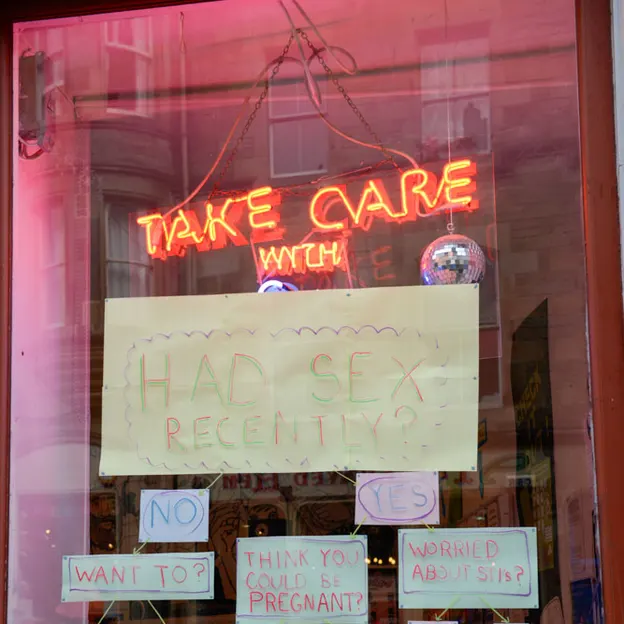 TAKE CARE
WITH
HAD SEX
RECENTLY?
NO
YES
WANT TO?
THINK YOU
COULD BE
PREGNANT?
WORRIED
ABOUT STIs?